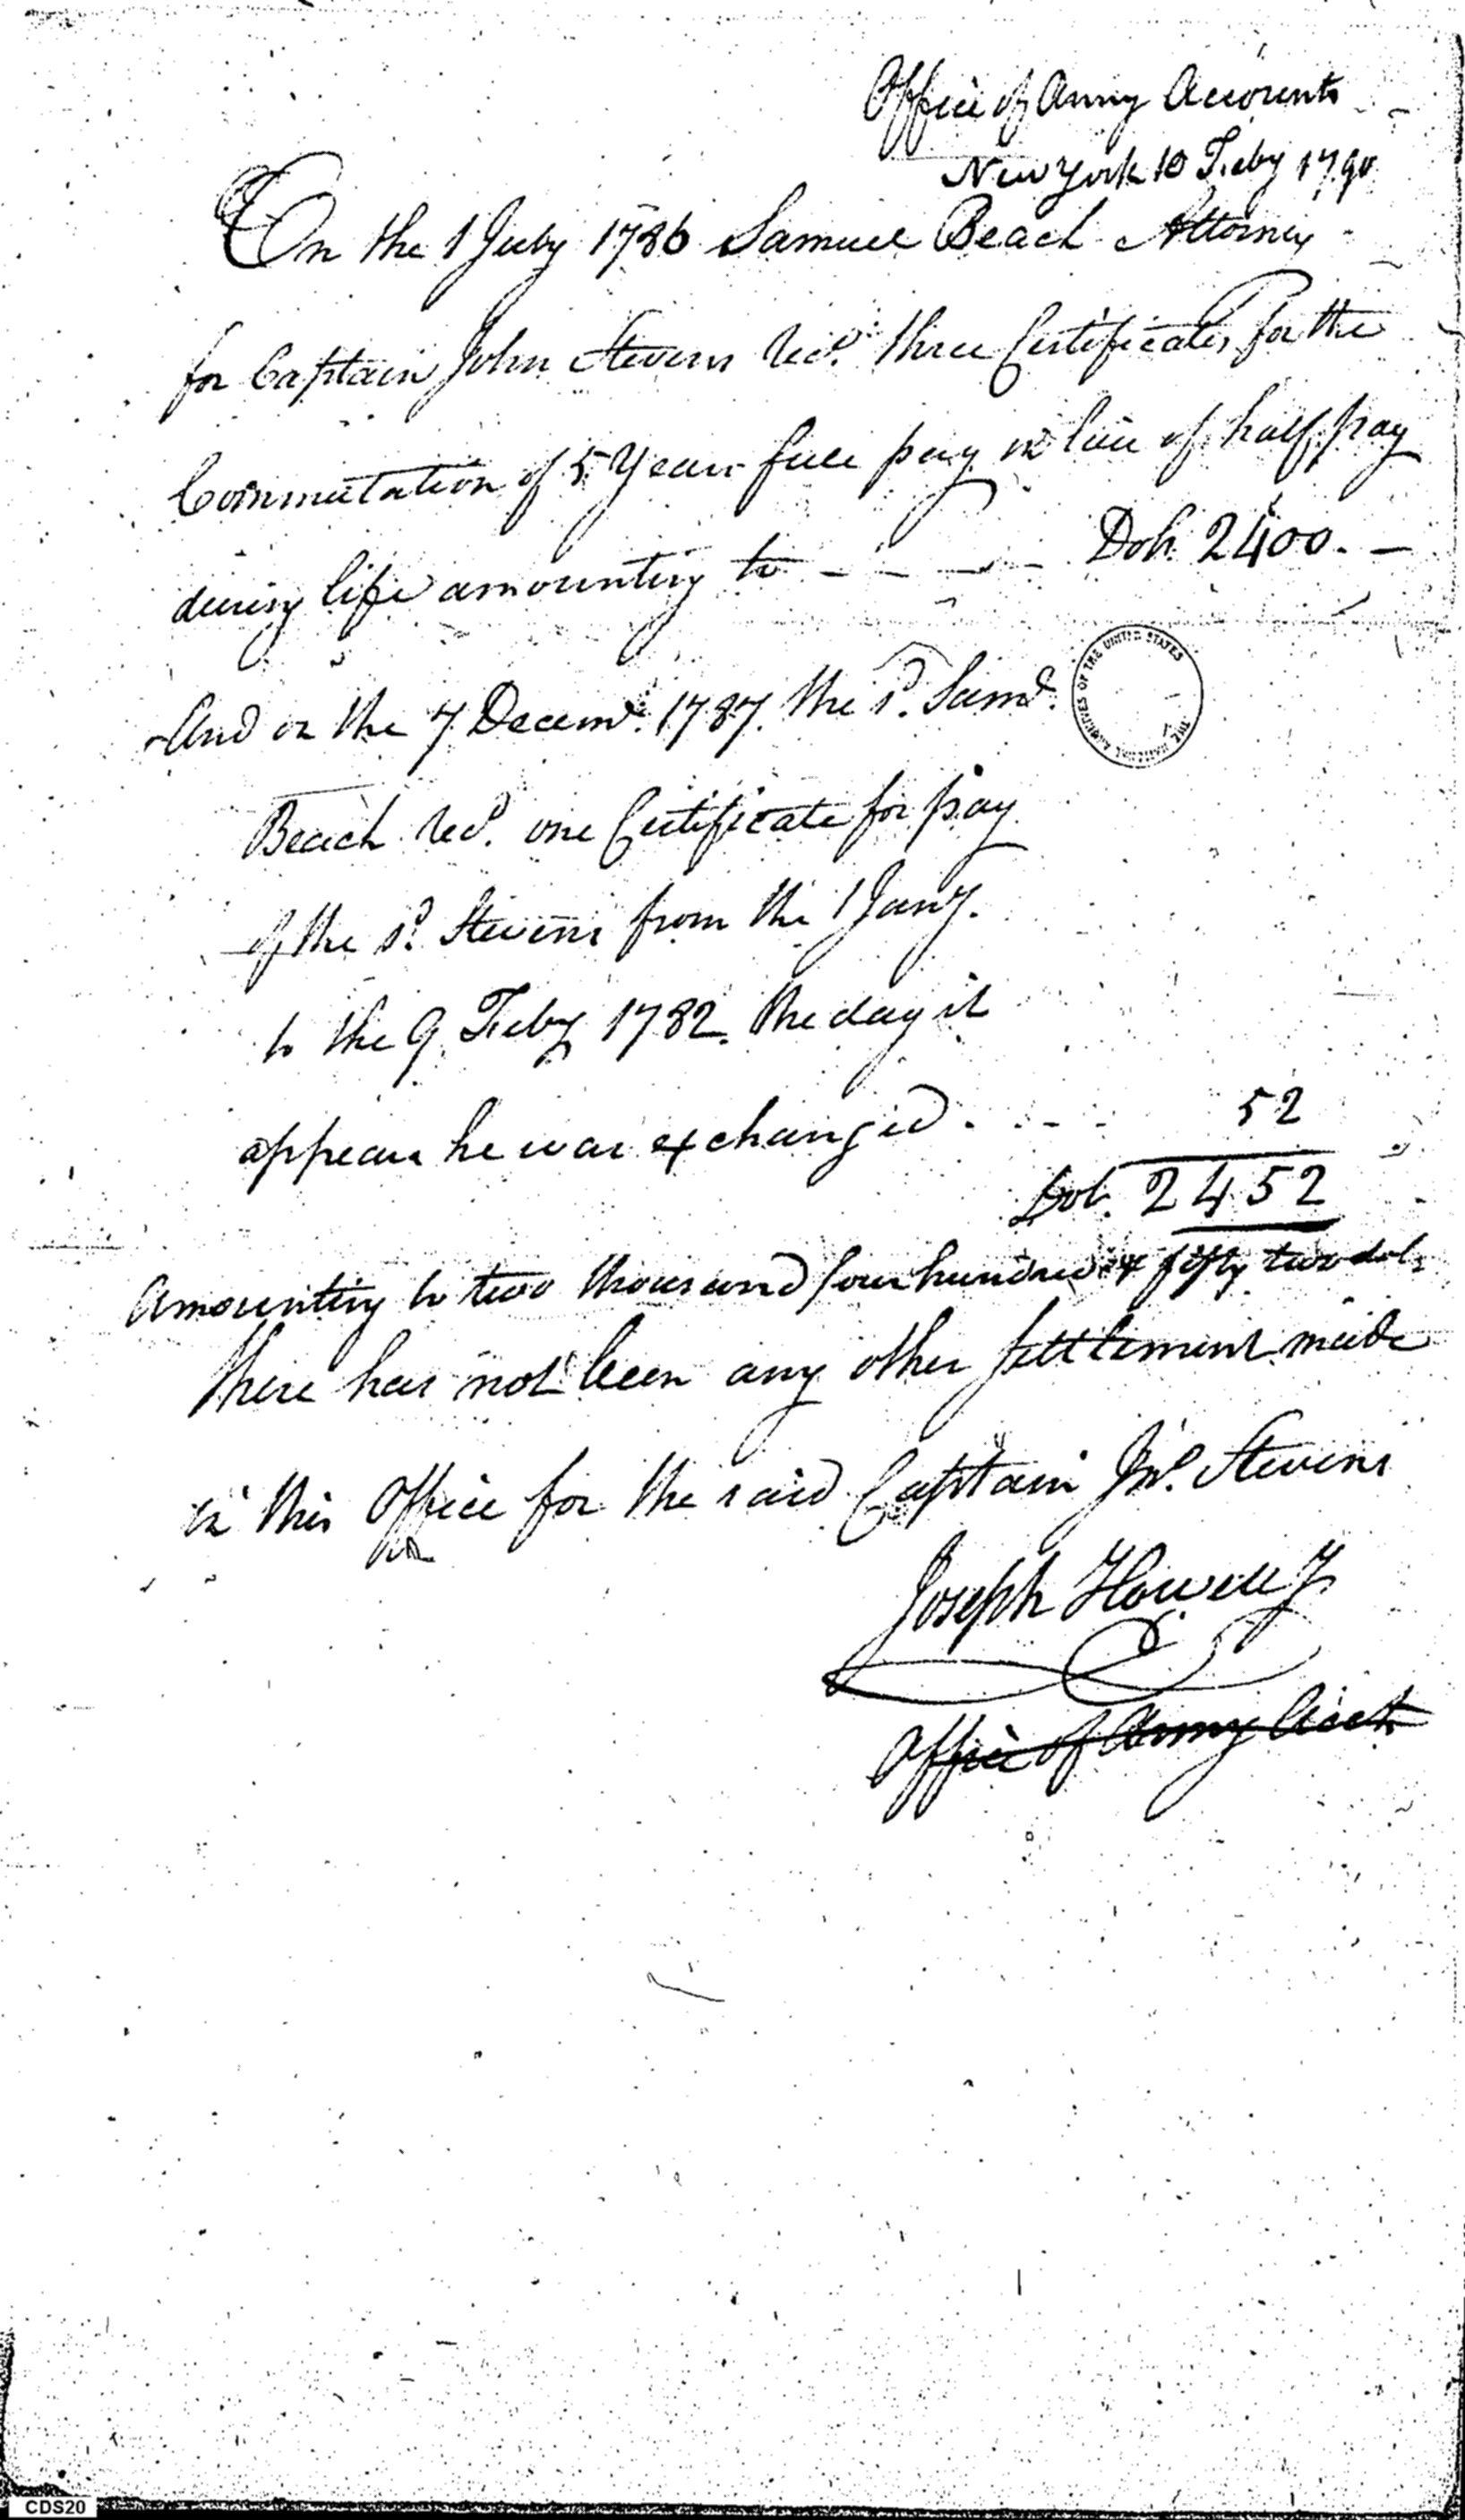 Office of Army Accounts
New York 10 Feby 1790
On the 1 July 1786 Samuel Beach Attorney
for Captain John Stevens Recd. three Certificates for the
Commutation of 5 Years full pay in lieu of half pay
during life amounting to - - - - Dolr. 2400. -
THE NATIONAL ARCHIVES OF THE UNITED STATES
And on the 7 Decemr. 1787. the sd. Saml.
Beach Recd. one Certificate for pay
of the sd. Stevens from the 1 Jany.
to the 9 Feby 1782. the day it
appears he was exchanged. - - - 52
Dol. 2452
Amounting to two thousand four hundred & fifty two dols
there has not been any other settlement made
in this Office for the said Captain Jno. Stevens
Joseph Howell J
Office of Army Acct
CDS20